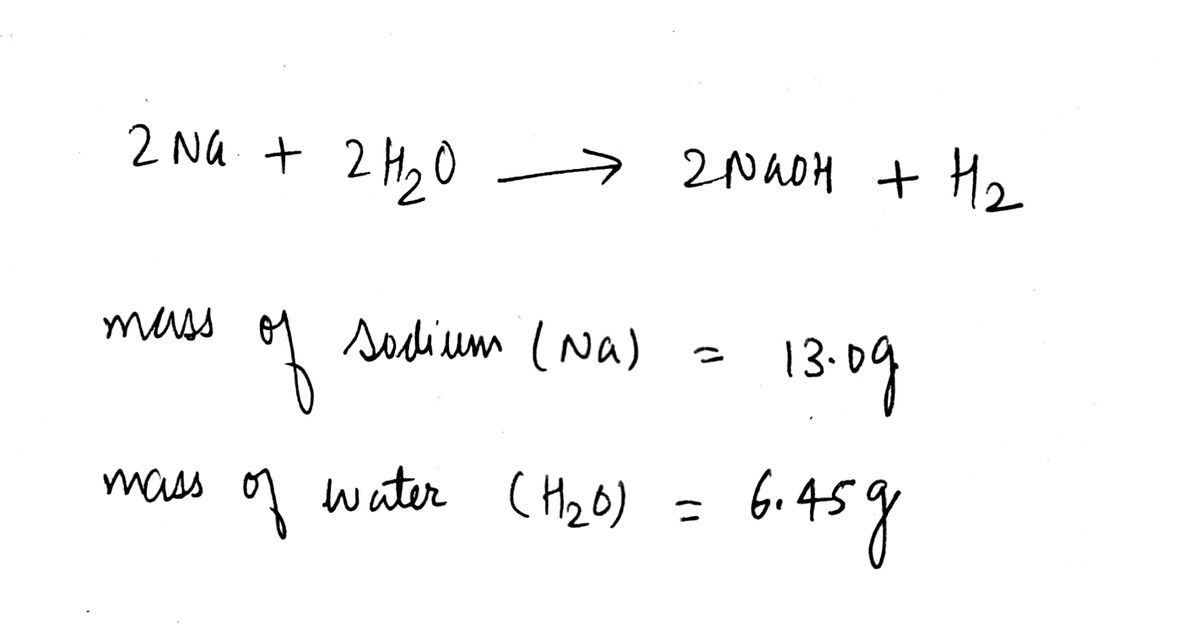 2 Na + 2 H₂O ⟶ 2NaOH + H₂
mass of sodium (Na) = 13.0g
mass of water (H₂O) = 6.45g